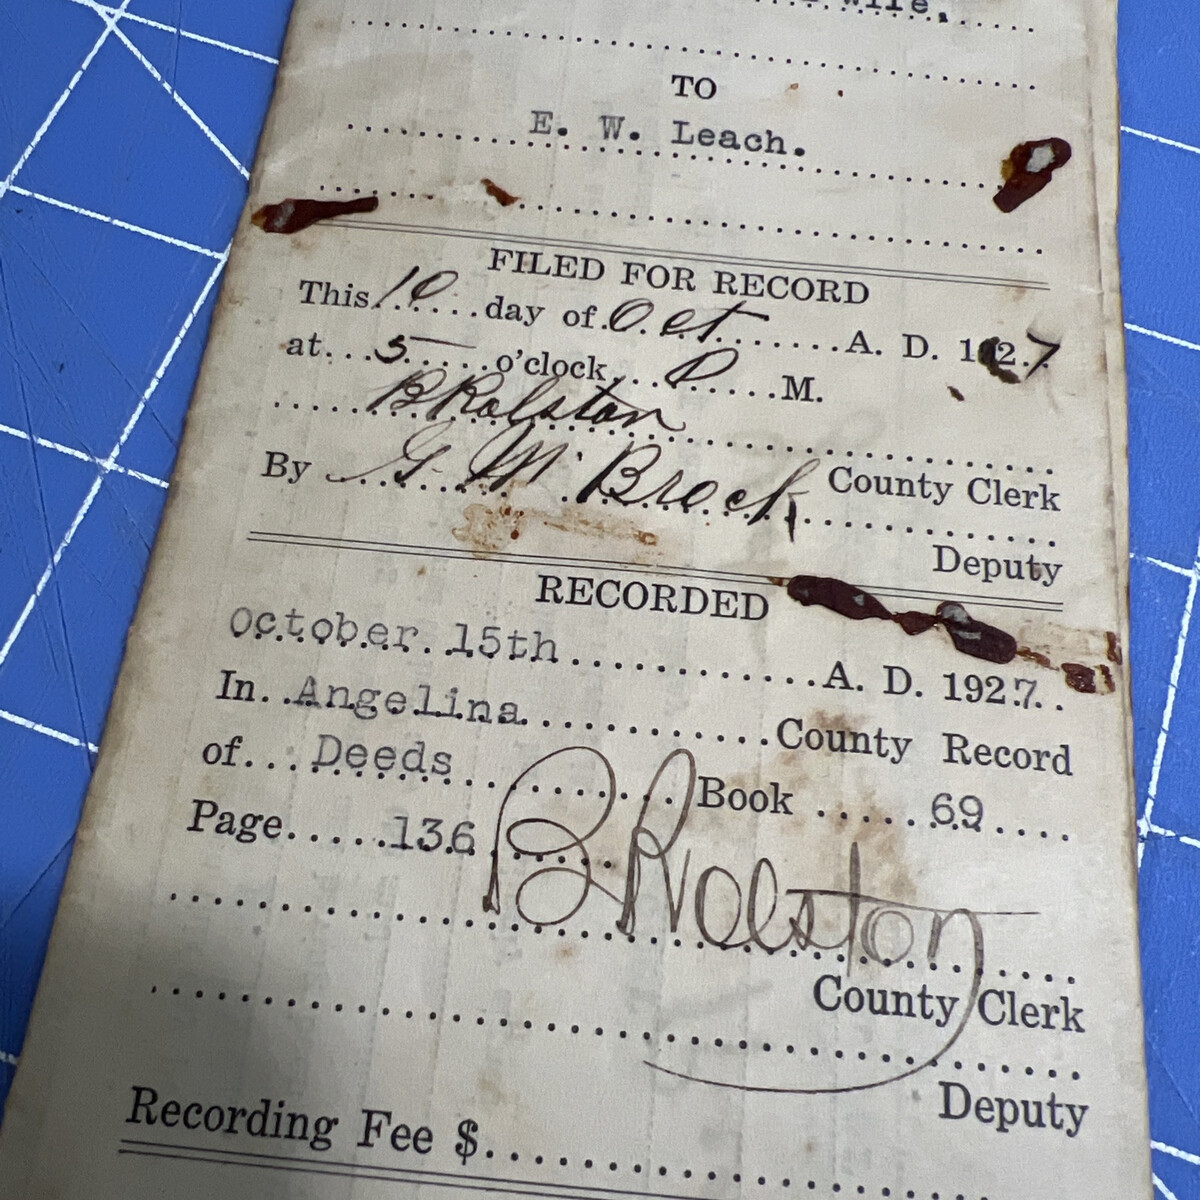 wife.
TO
E. W. Leach.
FILED FOR RECORD
This 10 day of Oct A. D. 1927
at 5 o'clock P M.
B Ralston
County Clerk
By G M Brock
Deputy
RECORDED
October 15th A. D. 1927.
In Angelina County Record
of Deeds Book 69
Page 136
B Ralston
County Clerk
Deputy
Recording Fee $